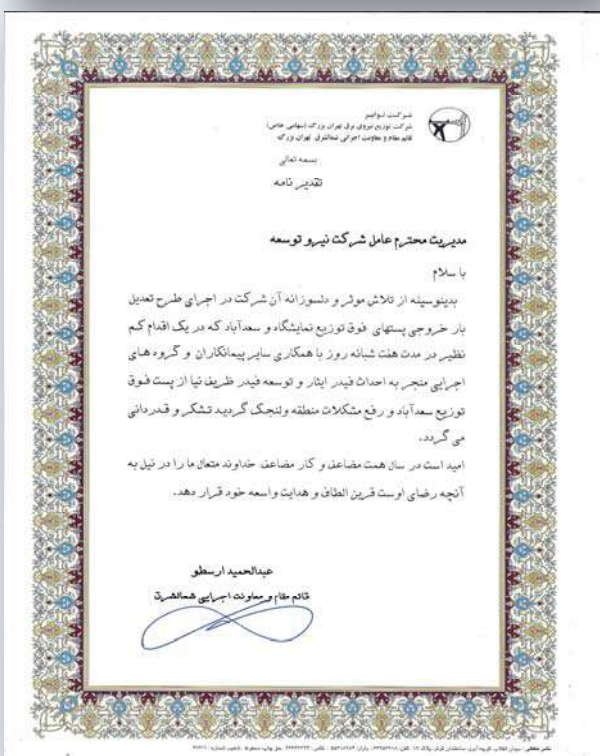 شرکت توانیر
شرکت توزیع نیروی برق تهران بزرگ (سهامی خاص)
قائم مقام و معاونت اجرائی شمالشرق تهران بزرگ
بسمه تعالی
تقدیر نامه
مدیریت محترم عامل شرکت نیرو توسعه
با سلام
بدینوسیله از تلاش موثر و دلسوزانه آن شرکت در اجرای طرح تعدیل
بار خروجی پستهای فوق توزیع نمایشگاه و سعدآباد که در یک اقدام کم
نظیر در مدت هفت شبانه روز با همکاری سایر پیمانکاران و گروه های
اجرایی منجر به احداث فیدر ایثار و توسعه فیدر ظریف نیا از پست فوق
توزیع سعدآباد و رفع مشکلات منطقه ولنجک گردید تشکر و قدردانی
می گردد.
امید است در سال همت مضاعف و کار مضاعف خداوند متعال ما را در نیل به
آنچه رضای اوست قرین الطاف و هدایت واسعه خود قرار دهد.
عبدالحمید ارسطو
قائم مقام و معاونت اجرایی شمالشرق